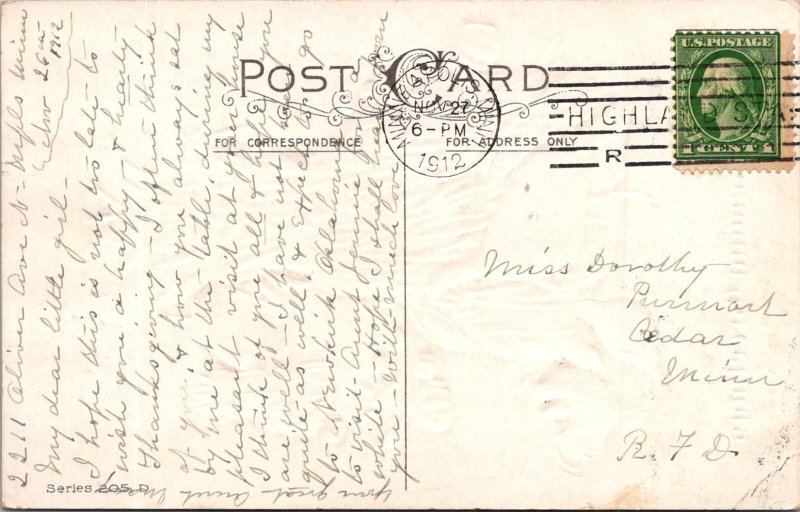 POST CARD
FOR CORRESPONDENCE
FOR ADDRESS ONLY
MINNEAPOLIS, MINN.
NOV 27
6-PM
1912
HIGHLA
R
U.S. POSTAGE
1 CENTS 1
Miss Dorothy
Purmort
Cedar
Minn
R. F. D
2211 Oliver Ave N- Mpls Minn
Nov 26th 1912
My dear little girl-
I hope this is not too late to
wish you a happy & hearty
Thanksgiving- I often think
of you & how you always sat
by me at the table, during my
pleasant visit at your house
I think of you all & hope you
are well- I have not been
quite as well, & expect to go
to Newkirk Oklahoma
to visit Aunt Jennie for a
while- Hope I shall hear from
you- With much love
Your great Aunt
Series 205 D